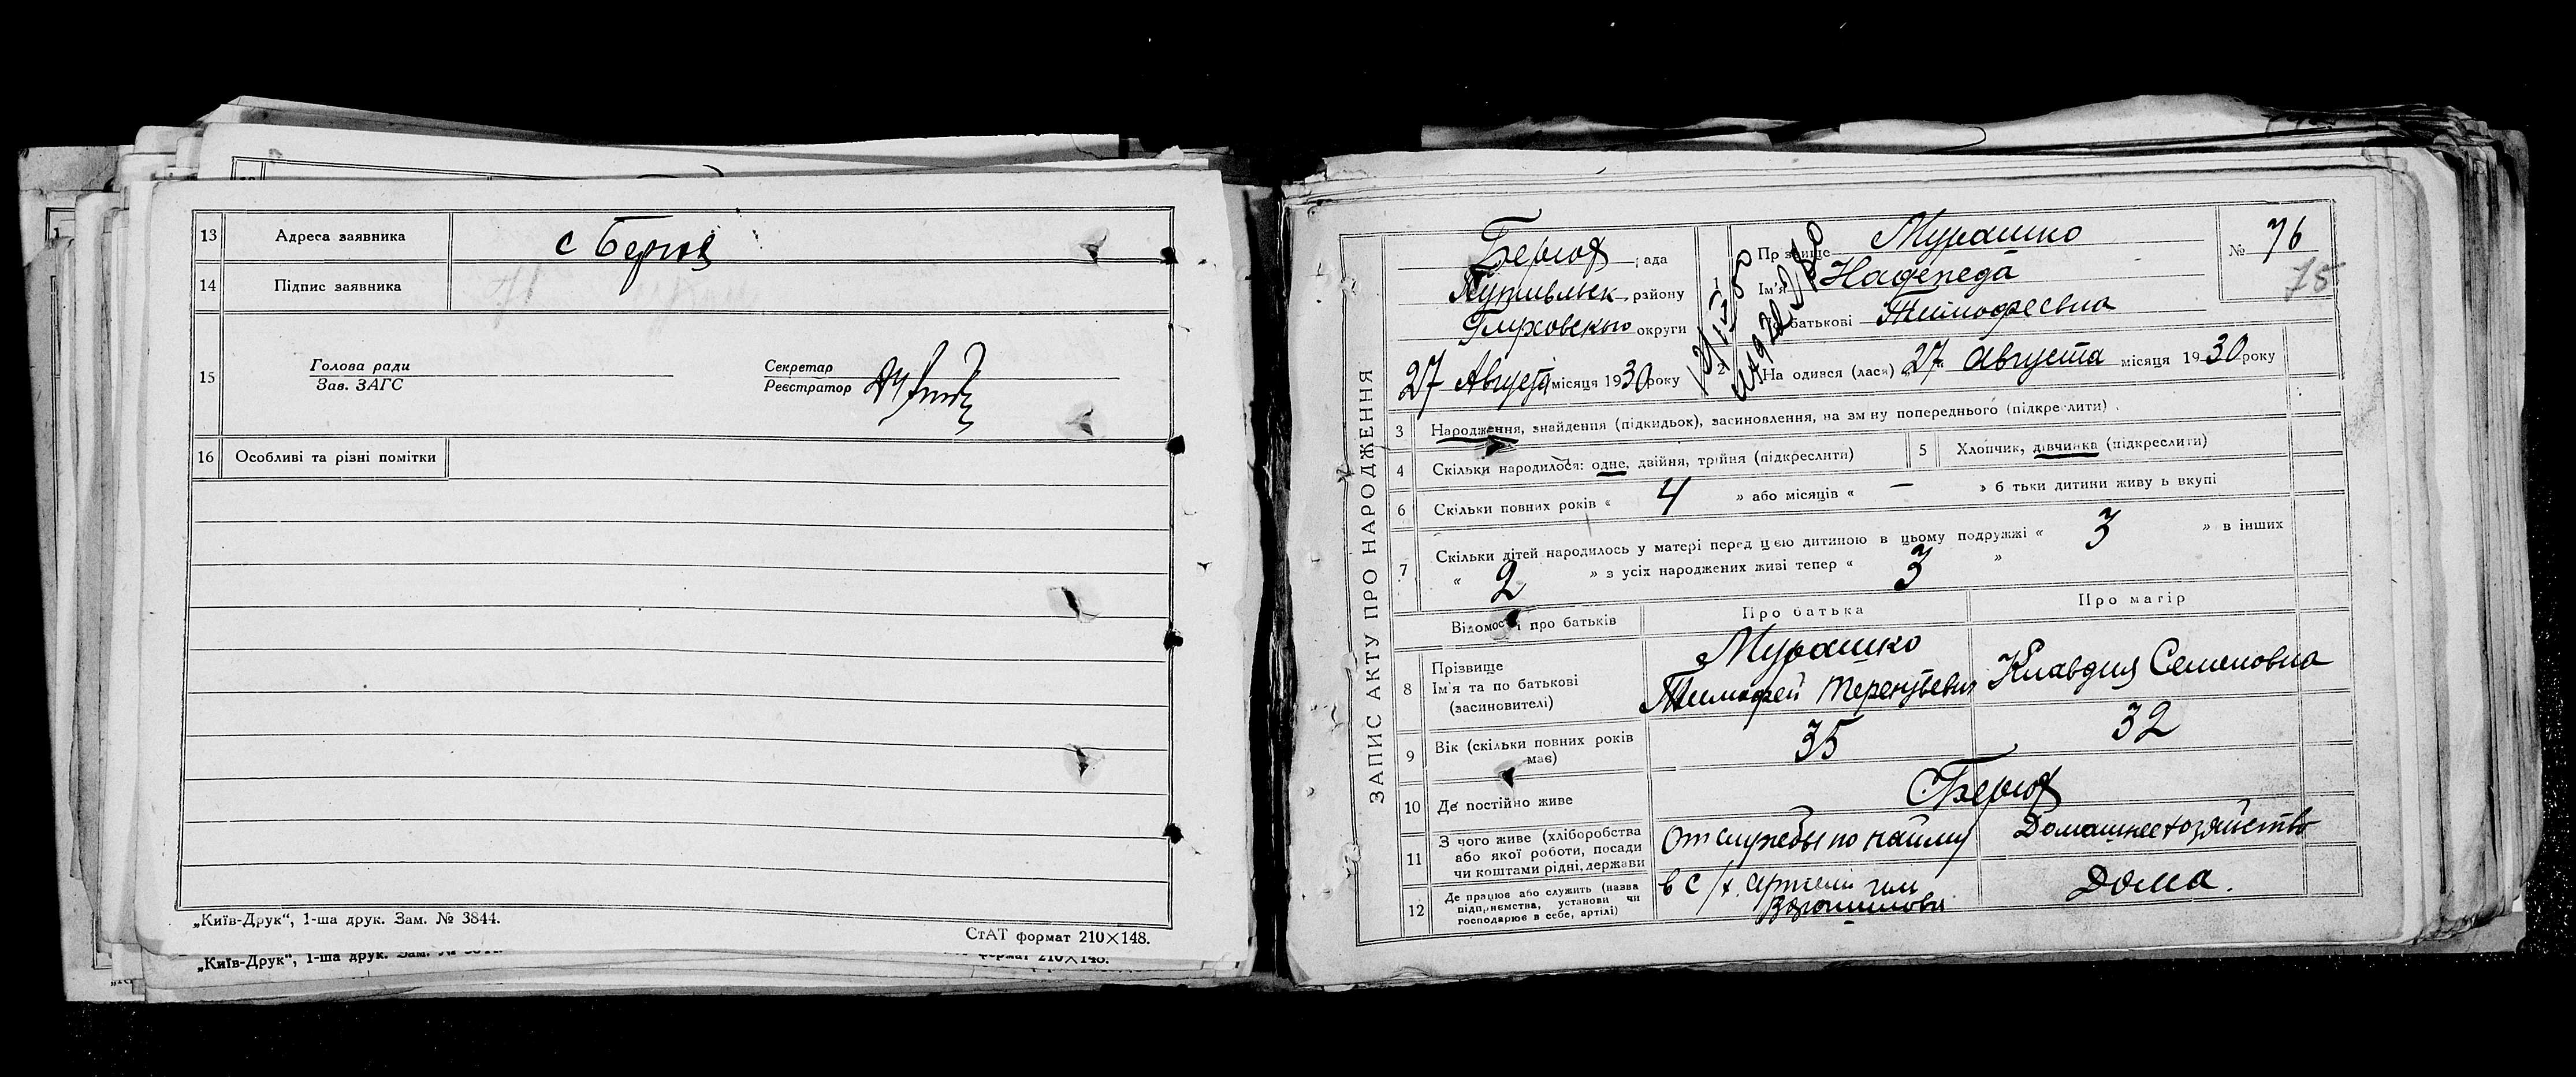 13 Адреса заявника с Берюх
14 Підпис заявника
15 Голова ради
Зав. ЗАГС
Секретар
Реєстратор
16 Особливі та різні помітки
„Київ-Друк“, 1-ша друк. Зам. № 3844.
СтАТ формат 210×148.
„Київ-Друк“, 1-ша друк. Зам. № 3844.
формат 210×148.
ЗАПИС АКТУ ПРО НАРОДЖЕННЯ
Берюх рада
Путивльск району
Глуховского округи
27 Августа місяця 1930 року
1 Прізвище Мурашко
Ім'я Надежда
По батькові Тимофеевна
№ 76
75
2 Народився (лася) «27» Августа місяця 1930 року
3 Народження, знайдення (підкидьок), засиновлення, на зміну попереднього (підкреслити)
4 Скільки народилося: одне, двійня, трійня (підкреслити)
5 Хлопчик, дівчинка (підкреслити)
6 Скільки повних років « 4 » або місяців « — » батьки дитини живуть вкупі
7 Скільки дітей народилось у матері перед цією дитиною в цьому подружжі « 3 » в інших
« 2 » з усіх народжених живі тепер « 3 »
Відомості про батьків
Про батька
Про матір
8 Прізвище
Ім'я та по батькові
(засиновителі)
Мурашко
Тимофей Терентьевич
Клавдия Семеновна
9 Вік (скільки повних років
має)
35
32
10 Де постійно живе
С Берюх
11 З чого живе (хліборобства
або якої роботи, посади
чи коштами рідні, держави
От службы по найму
Домашнее хозяйство
12 Де працює або служить (назва
підприємства, установи чи
господарює в себе, артілі)
в с/х. артели им
Ворошилова
Дома.